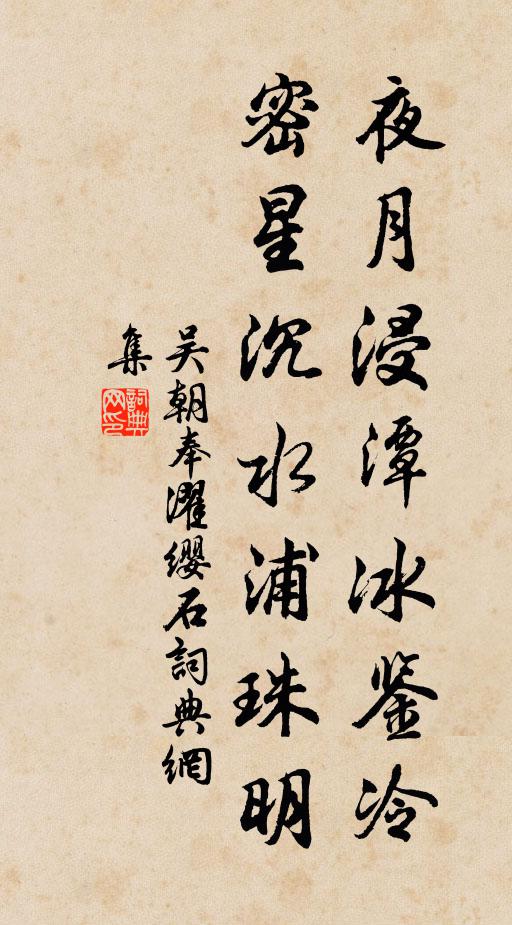 夜月浸潭冰鉴冷
密星沉水浦珠明
吴朝奉濯缨石詞典網
集
詞典
网印